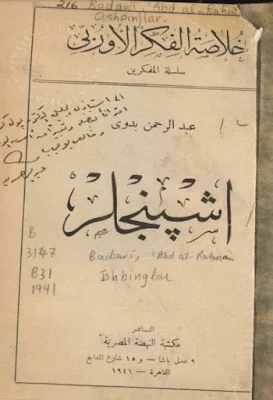 216 Badawi, Abd al-Rahman
Ashpinjlar.
خلاصة الفكر الأوربي
سلسلة المفكرين
عبد الرحمن بدوى
اشپنجلر
B
3147
B31
1941
Badawi, Abd al-Rahman
Ishbinglar
الناشر
مكتبة النهضة المصرية
٩ عدلى باشا — و ١٥ شارع المدابغ
القاهرة — ١٩٤١